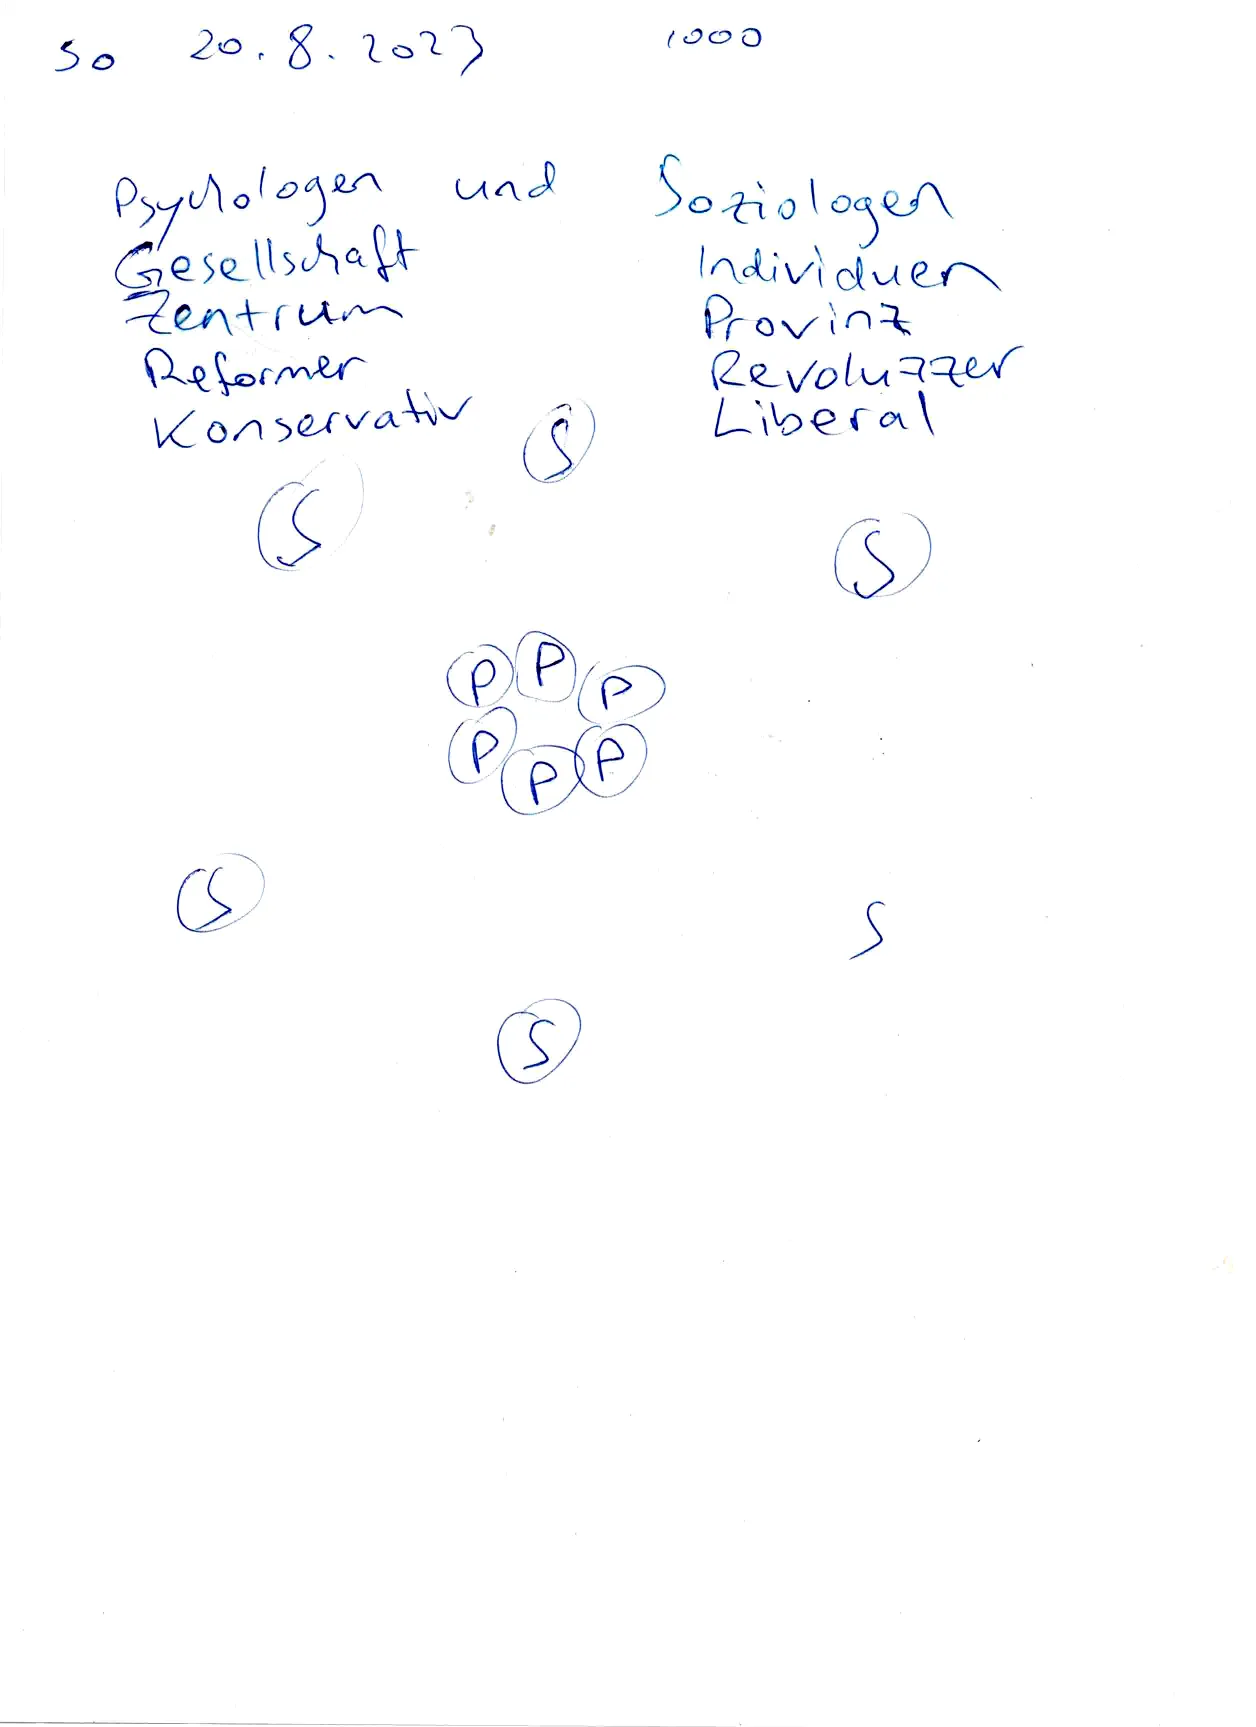 So 20.8.2023 1000
Psychologen und Soziologen
Gesellschaft Individuen
Zentrum Provinz
Reformer Revoluzzer
Konservativ Liberal
S
S
S
P P P
P P P
S
S
S